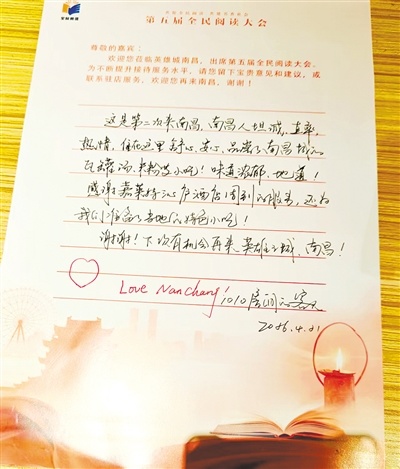 第五届全民阅读大会
尊敬的嘉宾：
欢迎您莅临英雄城南昌，出席第五届全民阅读大会。
为不断提升接待服务水平，请您留下宝贵意见和建议，或
联系驻店服务。欢迎您再来南昌，谢谢！
这是第二次来南昌，南昌人坦诚、直率、
热情，住在这里舒心、安心，品尝了南昌城的
瓦罐汤、米粉等小吃！味道浓郁、地道！
感谢嘉莱特沁庐酒店周到的服务，还为
我们准备了各地的特色小吃！
谢谢！下次有机会再来英雄之城，南昌！
Love NanChang！1010房间的客人
2026.4.21